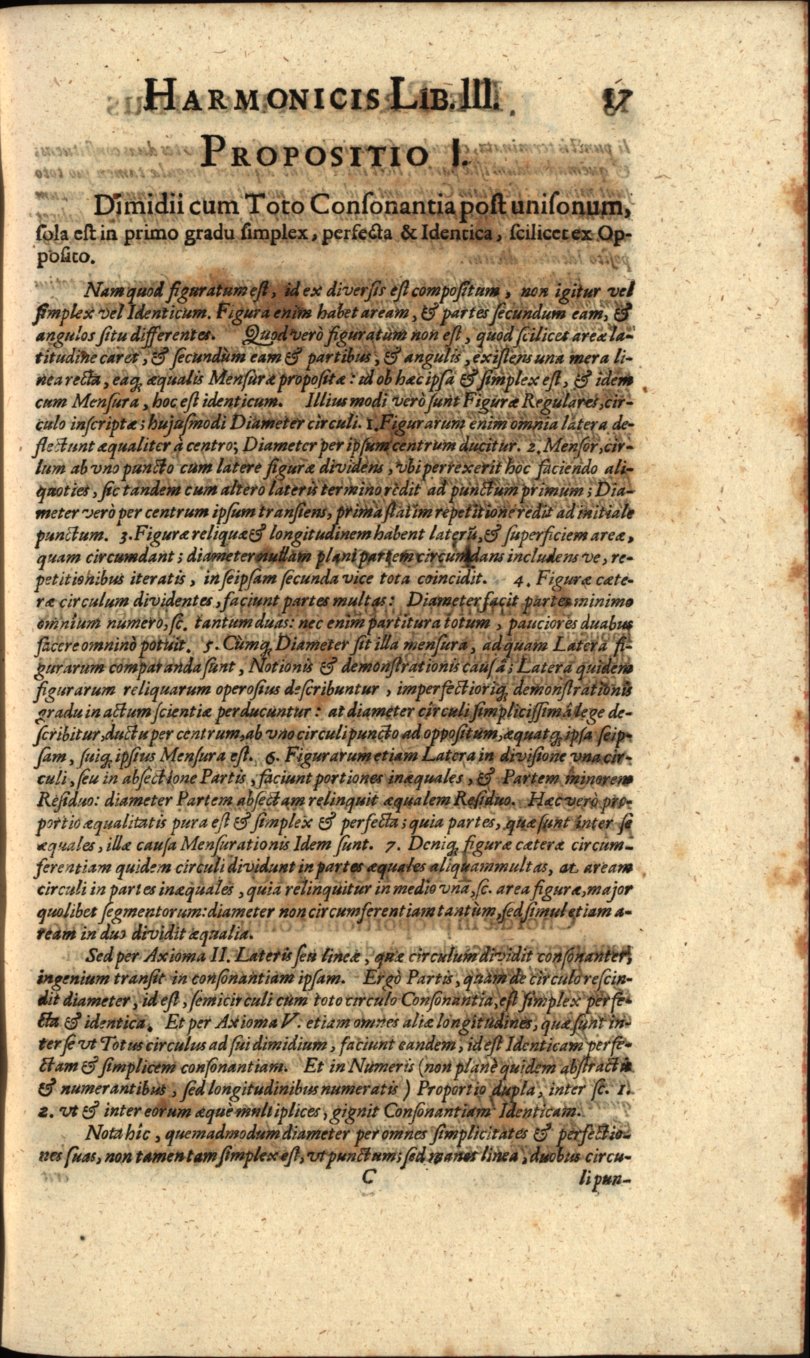 HARMONICIS LIB. III. 17
PROPOSITIO I.
Dimidii cum Toto Conſonantia poſt uniſonum,
ſola eſt in primo gradu ſimplex, perfecta & Identica, ſcilicet ex Op-
poſito.
Nam quod figuratum eſt, id ex diverſis eſt compoſitum, non igitur vel
ſimplex vel Identicum. Figura enim habet aream, & partes ſecundum eam, &
angulos ſitu differentes. Quod verò figuratum non eſt, quod ſcilicet areæ la-
titudine caret, & ſecundùm eam & partibus, & angulis, exiſtens una mera li-
nea recta, eaq, æqualis Menſuræ propoſitæ: id ob hæc ipſa & ſimplex eſt, & idem
cum Menſura, hoc eſt identicum. Illiusmodi verò ſunt Figuræ Regulares, cir-
culo inſcriptæ; hujuſmodi Diameter circuli. 1. Figurarum enim omnia latera de-
flectunt æqualiter à centro; Diameter per ipſum centrum ducitur. 2. Menſor, cir-
lum ab vno puncto cum latere figuræ dividens, vbi perrexerit hoc faciendo ali-
quoties, ſic tandem cum altero lateris termino rèdit ad punctum primum; Dia-
meter verò per centrum ipſum tranſiens, prima ſtatim repetitione redit ad initiale
punctum. 3. Figuræ reliquæ & longitudinem habent lateris, & ſuperficiem areæ,
quam circumdant; diameter nullam plani partem circumdans includensve, re-
petitionibus iteratis, in ſeipſam ſecunda vice tota coincidit. 4. Figuræ cæte-
ræ circulum dividentes, faciunt partes multas: Diameter facit partes minimo
omnium numero, ſc. tantum duas: nec enim partitura totum, pauciores duabus
facere omninò potuit. 5. Cùmq, Diameter ſit illa menſura, ad quam Latera fi-
gurarum comparanda ſunt, Notionis & demonſtrationis causâ; Latera quidem
figurarum reliquarum operoſius deſcribuntur, imperfectioriq, demonſtrationis
gradu in actum ſcientiæ perducuntur: at diameter circuli ſimpliciſſimâ lege de-
ſcribitur, ductu per centrum, ab vno circuli puncto ad oppoſitum, æquatq, ipſa ſeip-
ſam, ſuiq, ipſius Menſura eſt. 6. Figurarum etiam Latera in diviſione vna cir-
culi, ſeu in abſectione Partis, faciunt portiones inæquales, & Partem minorem
Reſiduo: diameter Partem abſectam relinquit æqualem Reſiduo. Hæc verò pro-
portio æqualitatis pura eſt & ſimplex & perfecta; quia partes, quæ ſunt inter ſe
æquales, illæ cauſa Menſurationis Idem ſunt. 7. Deniq, figuræ cæteræ circum-
ferentiam quidem circuli dividunt in partes æquales aliquammultas, at aream
circuli in partes inæquales, quia relinquitur in medio vna, ſc. area figuræ, major
quolibet ſegmentorum: diameter non circumferentiam tantùm, ſed ſimul etiam a-
ream in duo dividit æqualia.
Sed per Axioma II. Lateris ſeu lineæ, quæ circulum dividit conſonanter,
ingenium tranſit in conſonantiam ipſam. Ergò Partis, quam de circulo reſcin-
dit diameter, id eſt, ſemicirculi cum toto circulo Conſonantia, eſt ſimplex perfe-
cta & identica. Et per Axioma V. etiam omnes aliæ longitudines, quæ ſunt in-
ter ſe vt Totus circulus ad ſui dimidium, faciunt eandem, id eſt Identicam perfe-
ctam & ſimplicem conſonantiam. Et in Numeris (non planè quidem abſtractis
& numerantibus, ſed longitudinibus numeratis) Proportio dupla, inter ſc. 1.
2. vt & inter eorum æquè multiplices, gignit Conſonantiam Identicam.
Nota hîc, quemadmodum diameter per omnes ſimplicitates & perfectio-
nes ſuas, non tamen tam ſimplex eſt, vt punctum; ſed manet linea, duobus circu-
C li pun-